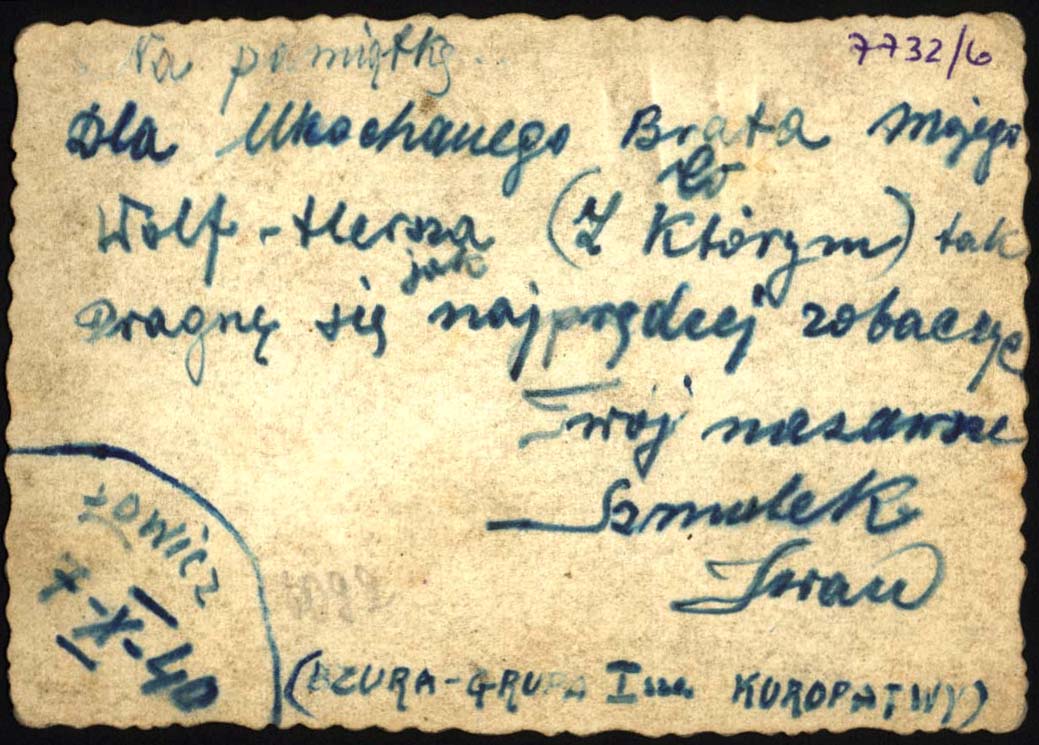 7732/6
Na pamiątkę..
Dla Ukochanego Brata mojego
Wolf-Hersza (Z Którym) tak
jak
Pragnę się najprędzej zobaczyć
Twój nazawsze
Szmulek
Łowicz
7-X-40
(BZURA-GRUPA I KUROPATWY)